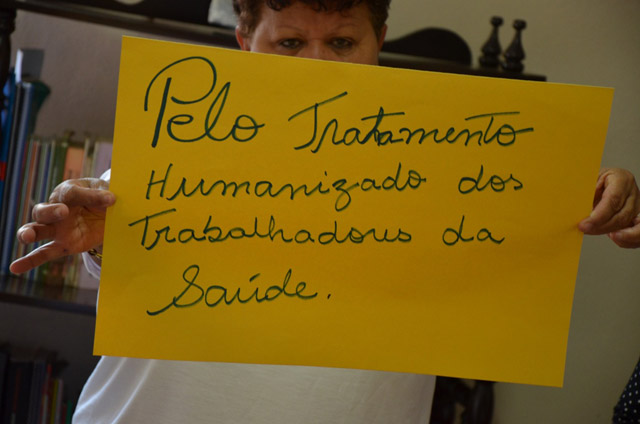 Pelo Tratamento
Humanizado dos
Trabalhadores da
Saúde.